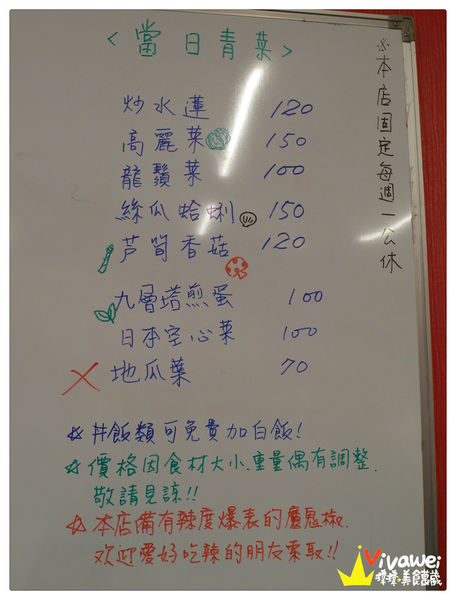 <當日青菜>
※本店固定每週一公休
炒水蓮 120
高麗菜 150
龍鬚菜 100
絲瓜蛤蜊 150
芦筍香菇 120
九層塔煎蛋 100
日本空心菜 100
地瓜葉 70
☆丼飯類可免費加白飯!
☆價格因食材大小.重量偶有調整.
敬請見諒!!
☆本店備有辣度爆表的魔鬼椒.
欢迎愛好吃辣的朋友索取!!
Vivawei
美食窩